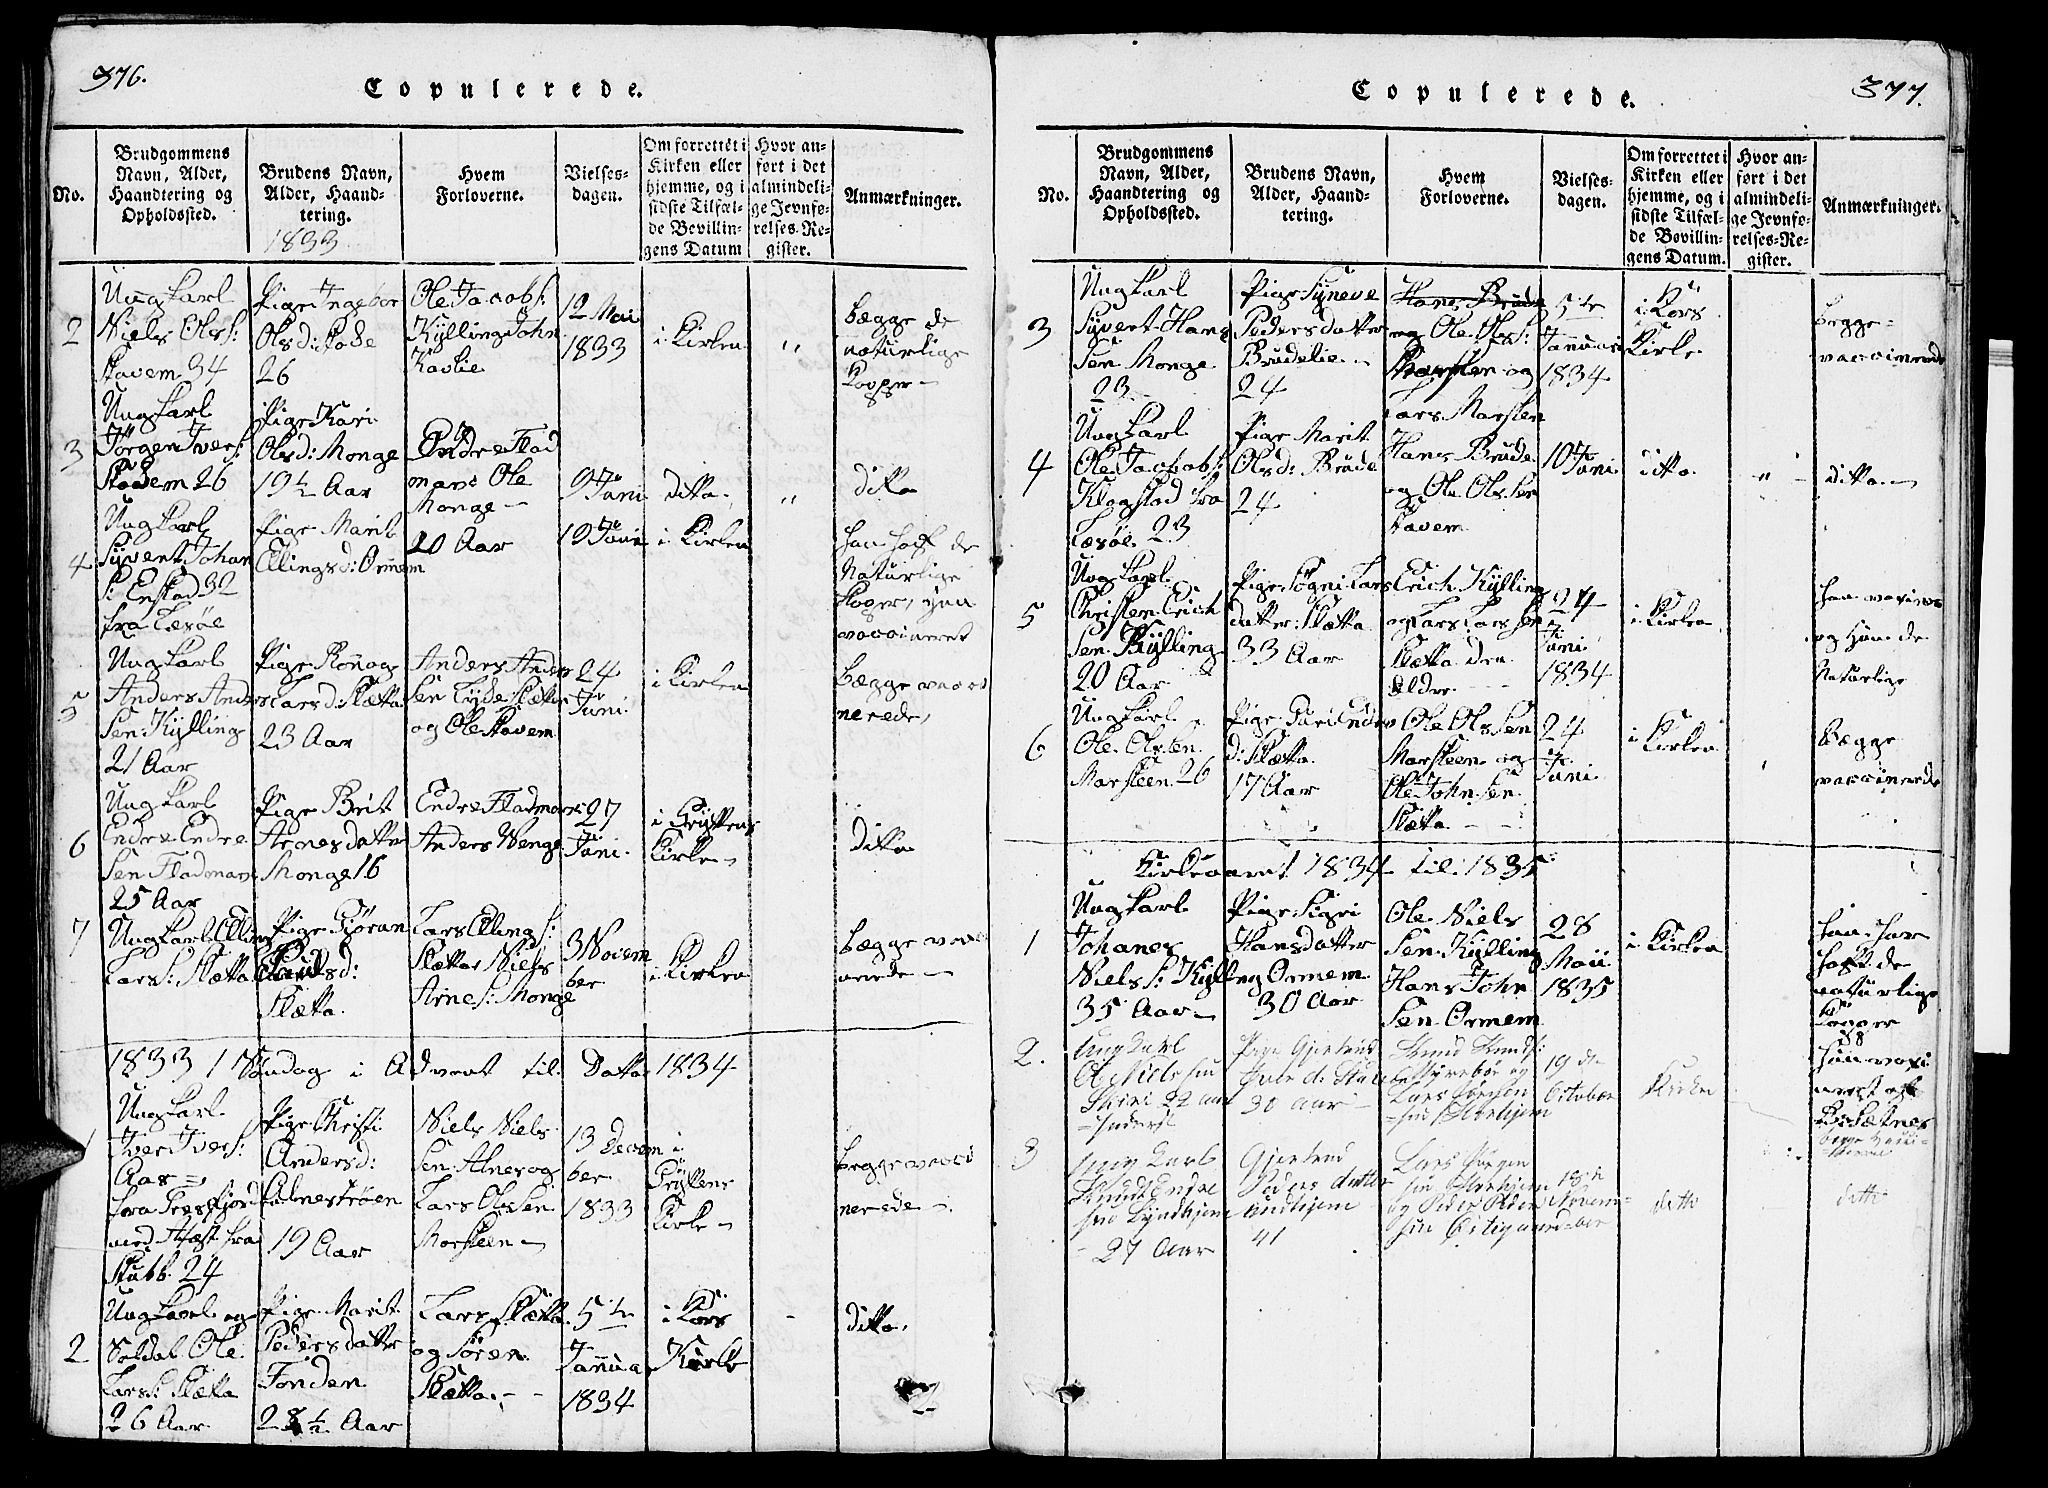 376.
Copulerede.
No.
Brudgommens
Navn, Alder,
Haandtering og
Opholdssted.
Brudens Navn,
Alder, Haand-
tering.
1833
Hvem
Forloverne.
Vielses-
dagen.
Om forrettet i
Kirken eller
hjemme, og i
sidste Tilfæl-
de Bevillin-
gens Datum
Hvor an-
ført i det
almindeli-
ge Jevnfø-
relses-Re-
gister.
Anmærkninger.
2
Ungkarl
Niels Ols:
Stavem 34
Pige Ingebor
Olsd: Stode
26
Ole Jacobs:
Kylling John
Kavlie
12 Mai
1833
i Kirken
"
begge de
naturlige
Kopper
3
Ungkarl
Jörgen Ivers:
Skodem 26
Pige Kari
Olsd: Monge
19½ Aar
Endre Flad
marc Ole
Monge
9 Juni
ditto
"
ditto
4
Ungkarl
Syvert Johan
S: Enstad 32
fra Lesöe
Pige Marit
Ellingsd: Ormem
20 Aar
19 Juni
i Kirken
han haft de
Naturlige
Koper, hun
vaccineret
5
Ungkarl
Anders Anders
Sen Kylling
21 Aar
Pige Ronnog
Larsd: Sletta
23 Aar
Anders Anders
Sen
og Ole Stavem
24
Juni
i Kirken
begge vacci
nerede,
6
Ungkarl
Endre Endre
Sen Fladmarc
25 Aar
Pige Brit
Arnesdatter
Monge 16
Endre Fladmarc
Anders Wenge
27
Juni
i Gryttens
Kirke
ditto
7
Ungkarl Elling
Lars: Sletta
Pige Giöran
Sletta
Lars Ellings:
Sletta Niels
Arnes: Monge
3 Novem
ber
i Kirken
begge vacci
nerede
1833 1 Söndag i Advent til Datto 1834
1
Ungkarl
Iver Ivers:
Aas
fra
med Attest fra
Stubb. 24
Pige Christi
Andersd:
Alnestrøen
19 Aar
Niels Niels
Sen Alnes og
Lars Olsen
Marsteen
13 Decem
ber
1833
i
Gryttens
Kirke
begge vacci
nerede
2
Ungkarl og
Soldat Ole
Lars: Sletta
26 Aar
Pige Marit
Pedersdatter
Fonden
28½ Aar
Lars Sletta
og Sören
Sletta
5te
Janua
1834
i Kors
Kirke
-
ditto.
377.
Copulerede.
No.
Brudgommens
Navn, Alder,
Haandtering og
Opholdssted.
Brudens Navn,
Alder, Haand-
tering.
Hvem
Forloverne.
Vielses-
dagen.
Om forrettet i
Kirken eller
hjemme, og i
sidste Tilfæl-
de Bevillin-
gens Datum.
Hvor an-
ført i det
almindeli-
ge Jevnfø-
relses-Re-
gister.
Anmærkninger.
3
Ungkarl
Syvert Hans
Sen Monge
23
Pige Syneve
Pedersdatter
Brudelie
24
Hans Brude
og Ole Ols:
Marsten og
Lars Marsten
5te
Januari
1834
i Kors
Kirke
begge
vaccinerede
4
Ungkarl
Ole Jacobs:
Klogstad fra
Lesöe 23
Pige Marit
Olsd: Brude
24
Hans Brude
og Ole Olsen
Stavem
10 Juni
ditto
"
ditto
5
Ungkarl
Christen Erich
Sen Kylling
20 Aar
Pige Sögni Lars
datter: Sletta
33 Aar
Erich Kylling
og Lars Larsen
Sletta den
Eldre
24
Juni
1834
i Kirken
han vaccine
og Hun de
Naturlige
6
Ungkarl
Ole Olsen
Marsteen 26
Pige Guri Endre
d: Sletta
17 Aar
Ole Olssen
Marsteen og
Ole Johnsen
Sletta
24
Juni
i Kirken
Begge
vaccinerede
Kirkeaaret 1834 til 1835
1
Ungkarl
Johanes
Niels S: Kylling
35 Aar
Pige Sigri
Hansdatter
Ormem
30 Aar
Ole Niels
Sen Kylling
Hans John
Sen Ormem
28
Maii
1835
i Kirken
han har
haft de
naturlige
Kopper
hun vaxi
neret af
2.
Ungkarl
Ole Nielssen
22 aar
Pige Gjertrud
30 aar
Knud Knuds:
og
Lars Jörgen
19 de
October
Kirken
begge
3
Ungkarl
Knud Endre
sen
27 Aar
Gjertrud
Peders datter
41
Lars Jörgen
sen
og Peder Peder
sen
18de
Novem-
ber
ditto
ditto